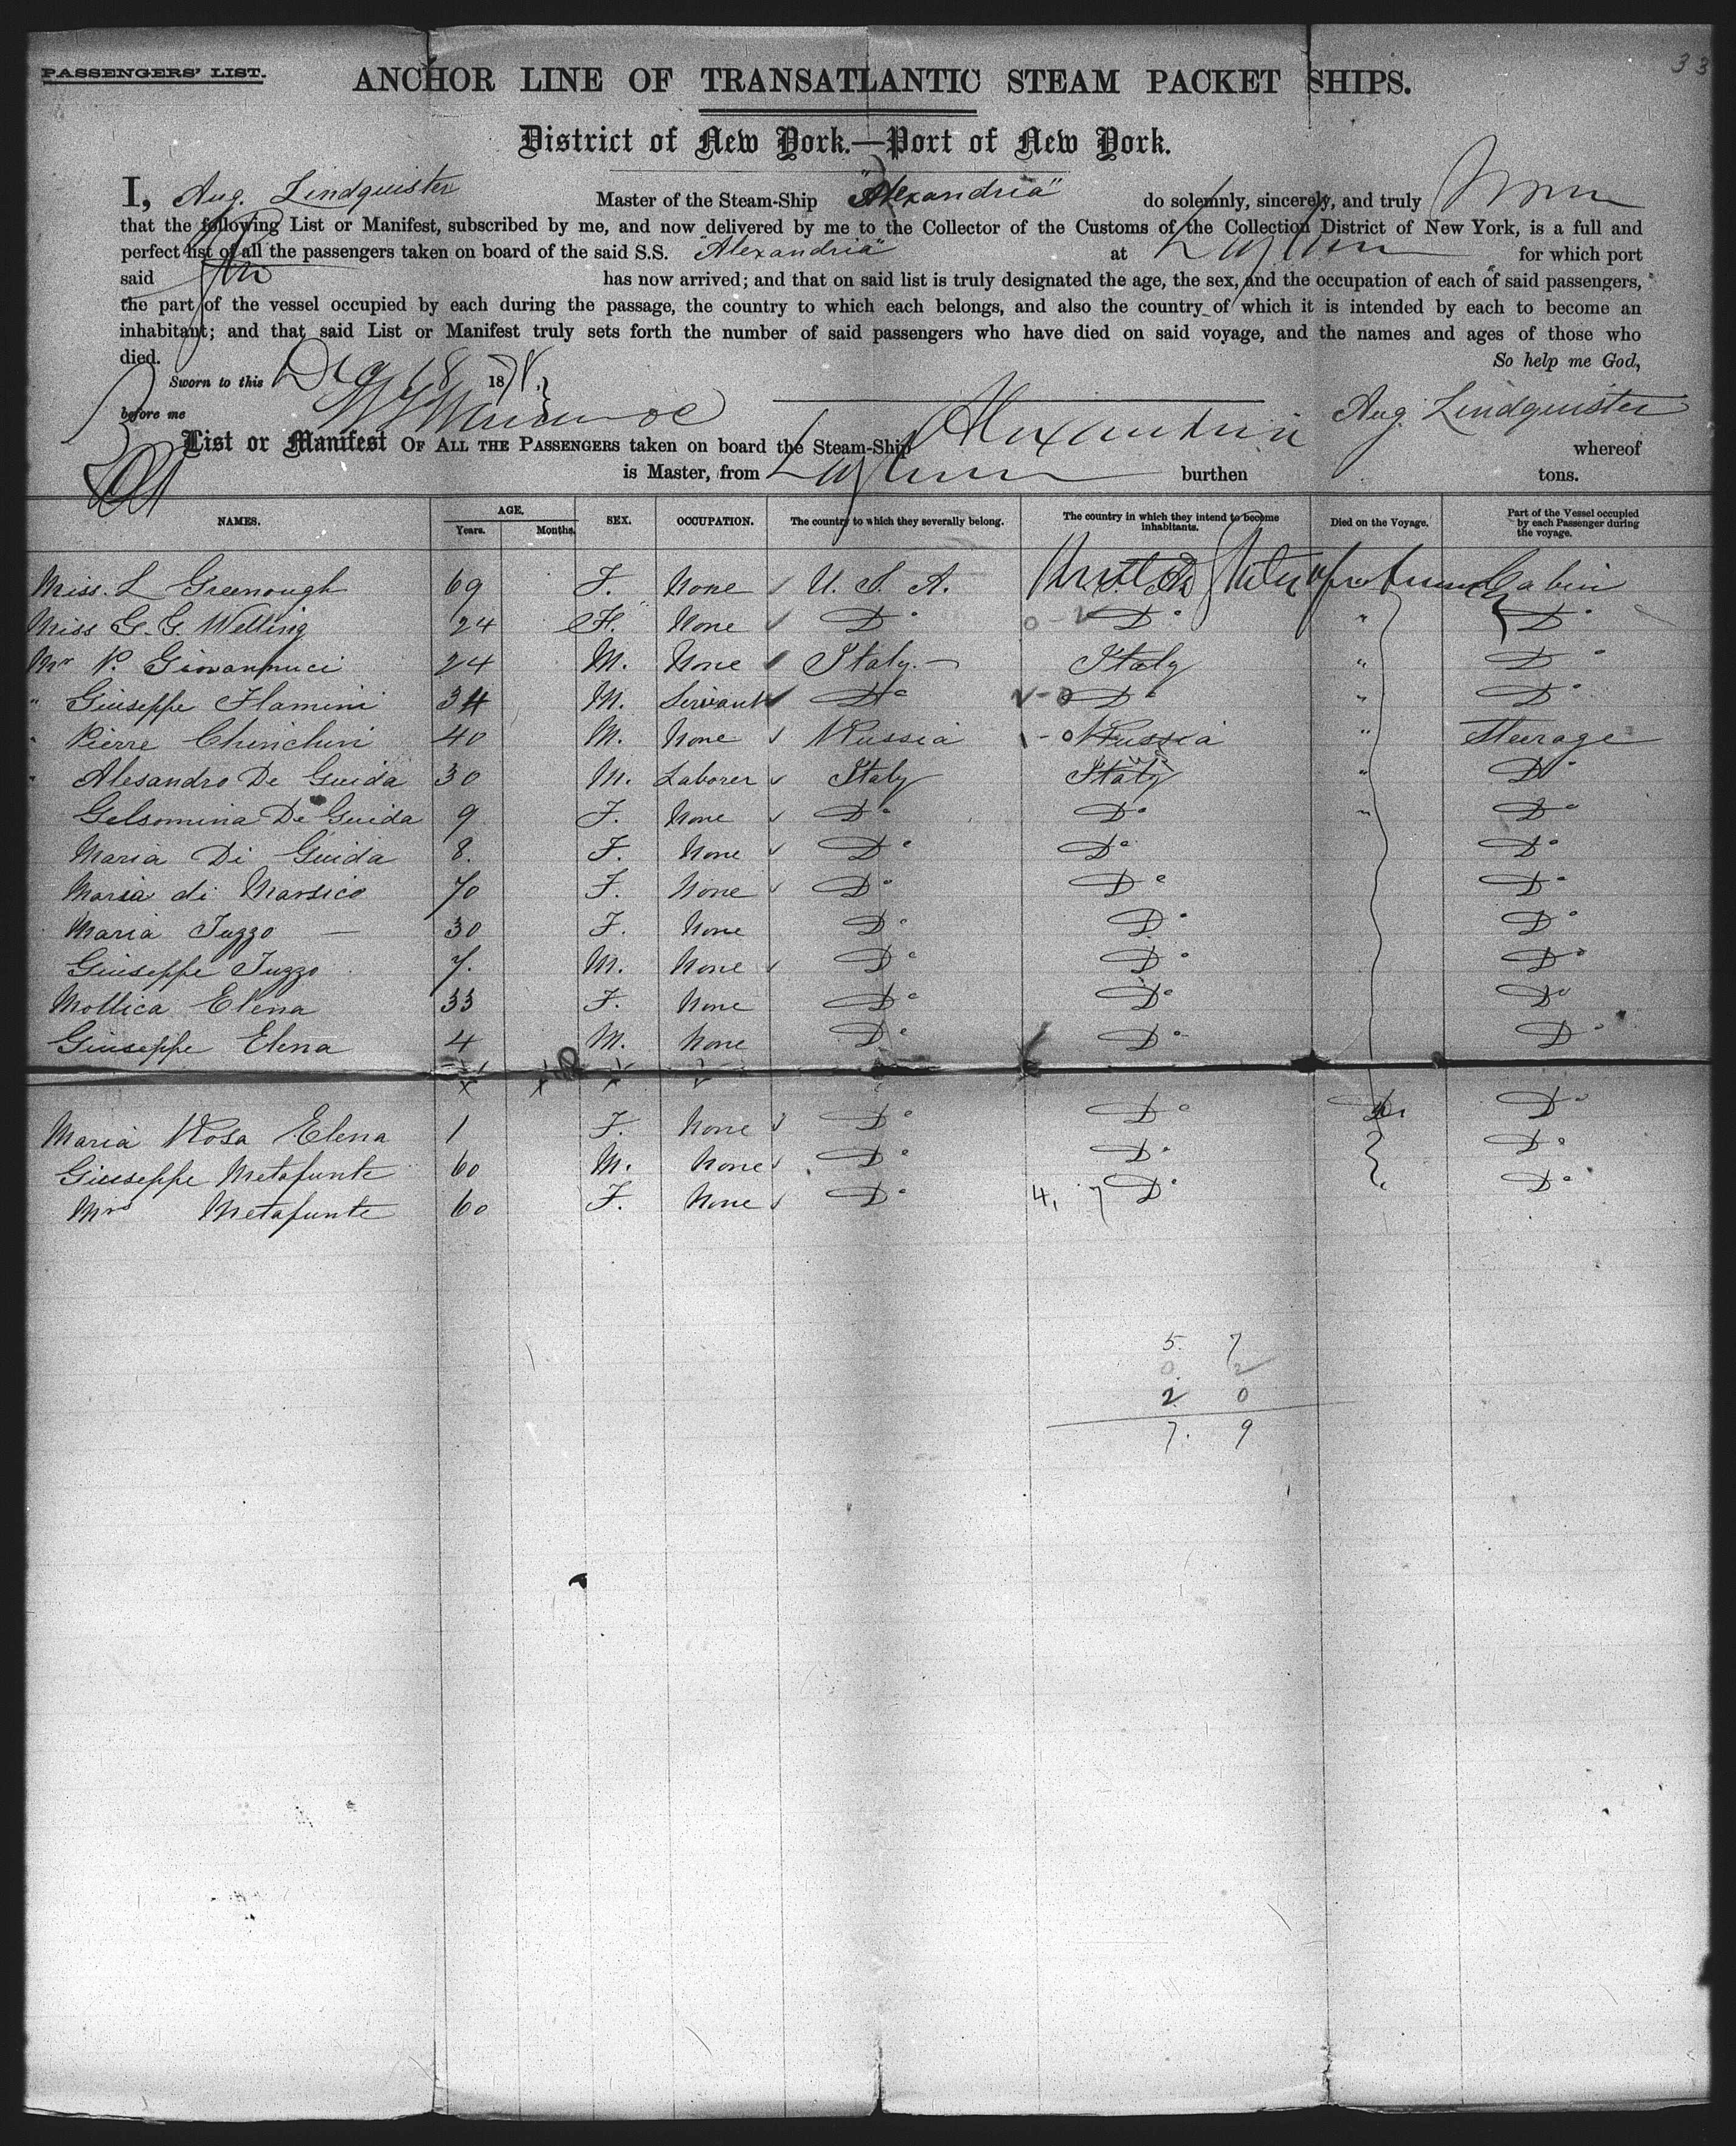 33
PASSENGERS' LIST.
ANCHOR LINE OF TRANSATLANTIC STEAM PACKET SHIPS.
District of New York.—Port of New York.
I, Aug. Lindquister Master of the Steam-Ship "Alexandria" do solemnly, sincerely, and truly
that the following List or Manifest, subscribed by me, and now delivered by me to the Collector of the Customs of the Collection District of New York, is a full and
perfect list of all the passengers taken on board of the said S.S. "Alexandria" at for which port
said has now arrived; and that on said list is truly designated the age, the sex, and the occupation of each of said passengers,
the part of the vessel occupied by each during the passage, the country to which each belongs, and also the country of which it is intended by each to become an
inhabitant; and that said List or Manifest truly sets forth the number of said passengers who have died on said voyage, and the names and ages of those who
died. So help me God,
Sworn to this Dec 18 1878.
before me Aug. Lindquister
List or Manifest OF ALL THE PASSENGERS taken on board the Steam-Ship Alexandria whereof
is Master, from burthen tons.
NAMES. AGE. Years. Months. SEX. OCCUPATION. The country to which they severally belong. The country in which they intend to become inhabitants. Died on the Voyage. Part of the Vessel occupied by each Passenger during the voyage.
Miss. L Greenough 69 F. None U. S. A. United States Cabin
Miss G. G. Welling 24 F. None Do 0-2 Do " Do
Mr P. Giovannuci 24 M. None Italy. Italy " Do
" Giuseppe Flamini 34 M. Servant Do 2-0 Do " Do
" Pierre Chinchini 40 M. None Russia 1-0 Russia " Steerage
" Alesandro De Guida 30 M. Laborer Italy Italy " Do
Gelsomina De Guida 9 F. None Do Do " Do
Maria Di Guida 8. F. None Do Do Do
Maria di Marsico 70 F. None Do Do Do
Maria Iuzzo 30 F. None Do Do Do
Giuseppe Iuzzo 7. M. None Do Do Do
Mollica Elena 33 F. None Do Do Do
Giuseppe Elena 4 M. None Do Do Do
Maria Rosa Elena 1 F. None Do Do Do Do
Giuseppe Metafunte 60 M. None Do Do Do
Mrs Metafunte 60 F. None Do 4, 7 Do " Do
5. 7
0. 2
2 0
7. 9